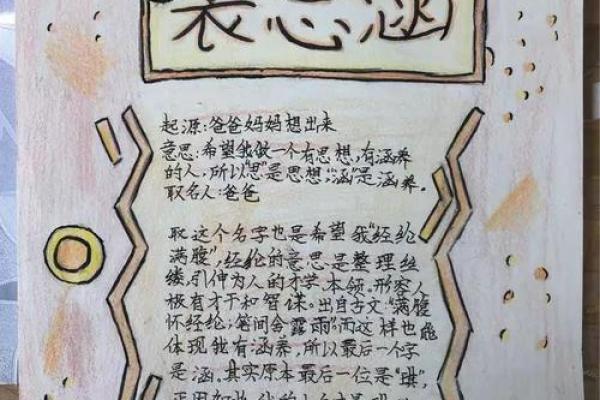 思涵
起源:爸爸妈妈想出来
意思:希望我做一个有思想,有涵养
的人,所以"思"是思想,"涵"是涵养。
取名人:爸爸
取这个名字也是希望我"经纶
满腹",经纶的意思是整理丝
缕,引伸为人的才学、本领。形容人
极有才干和智谋。出自于文"满腹
怀经纶;笔间含露雨"而这样也能
体现我有涵养,所以最后一个字
是涵。其实原本最后一位是"琪",